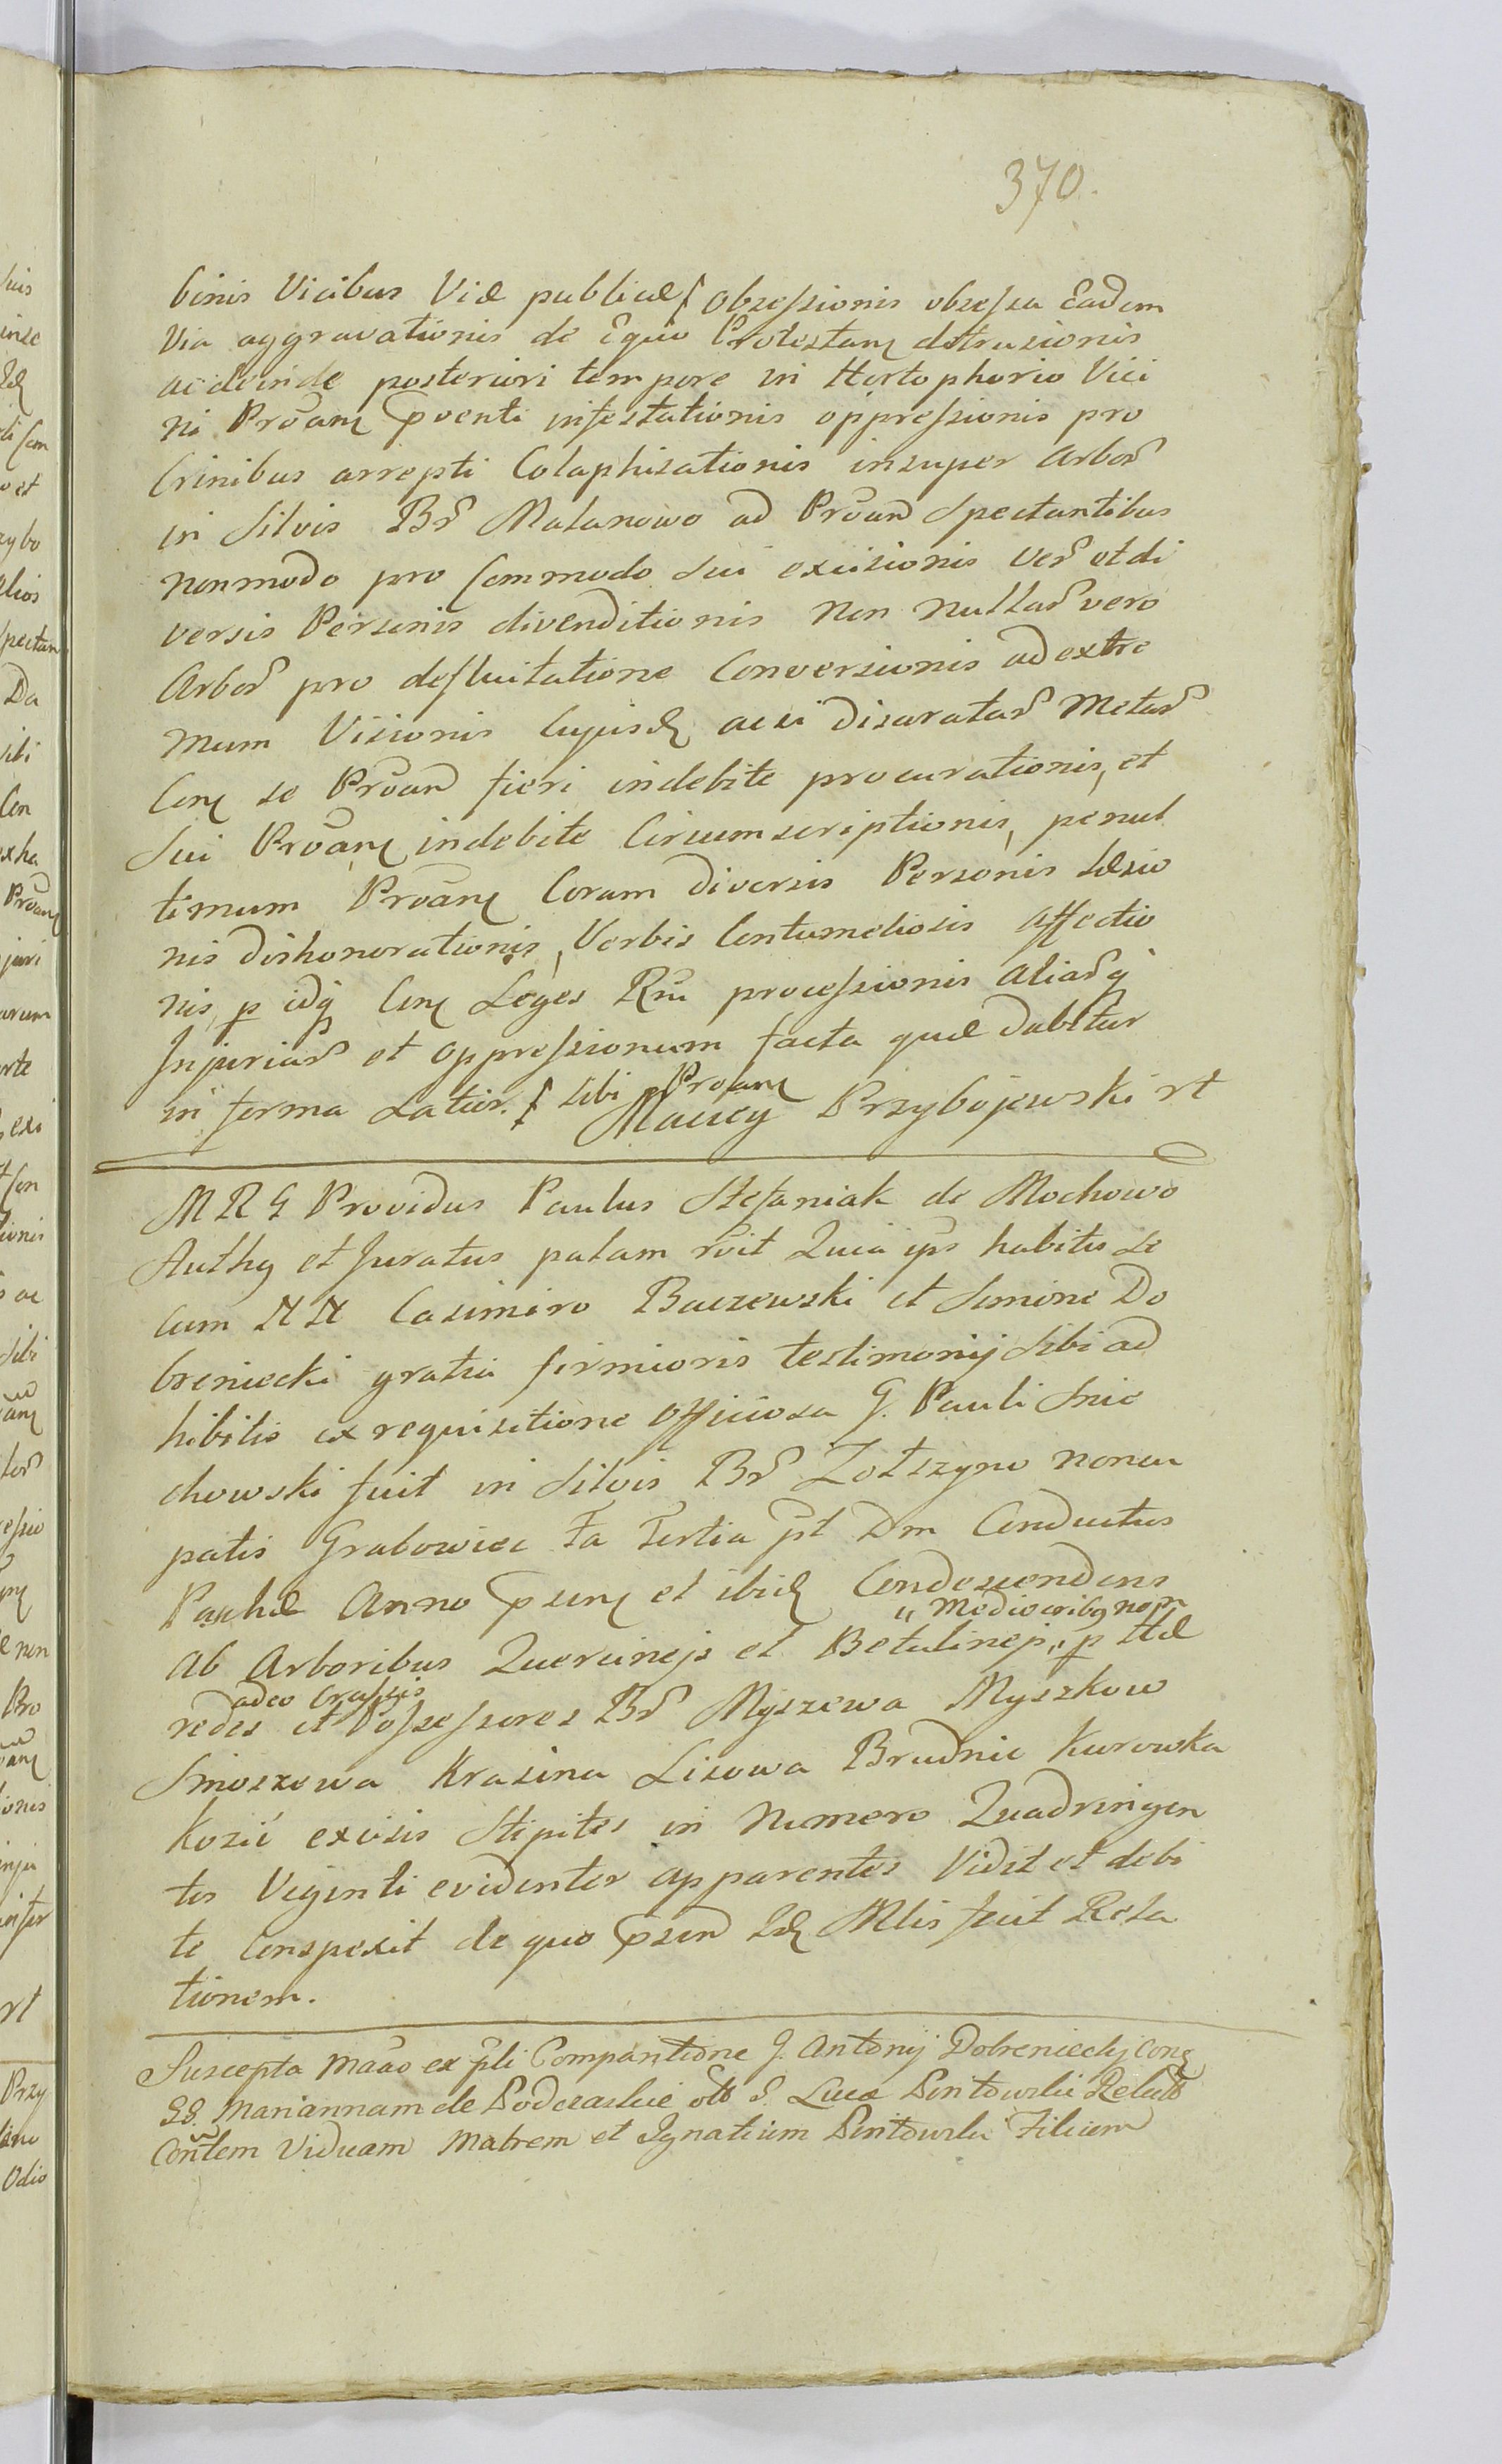 370.
binis Vicibus Viæ publicæ obsessionis obsessa Eadem
Via aggravationis de Equo Protestan detrusionis
ac deinde posteriori tempore in Hortophorio Vici
ni Proan pventi infestationis oppressionis pro
Crinibus arrepti Colaphisationis insuper Arbor
in Silvis Br Malanowo ad Proand Spectantibus
nonmodo pro Commodo Sui excisionis Ver et di
versis Personis divenditionis Non Nullar vero
Arbor pro defluitatione Conversionis ad extre
mum Visionis Cujusd acsi Disaratar Metar
Con se Proand fieri indebite procurationis, et
Sui Proan indebite Circumscriptionis, penul
timum Proan Coram Diversis Personis Læsio
nis Dishonorationis, Verbis Contumeliosis Affectio
nis, p idq Con Leges Rni processionis Aliarq
Injuriar et oppressionum facta quæ Dabitur
in forma Latior. sibi Proan
Maciey Przybojewski rt
M R G Providus Paulus Stefaniak de Mochowo
Authq et Juratus palam rvit Quia ips habitis Se
cum NN Casimiro Baczewski et Simone Do
breniecki gratia firmioris testimonij Sibi ad
hibitis ex requisitione Officiosa G. Pauli Snie
chowski fuit in Silvis Br Zołszyno noncu
patis Grabowiec Fa Tertia pt Dm Conductus
Paschæ Anno psen et ibid Condescendens
" Mediocribq non
ab Arboribus Quercineis et Betulineis " p Hæ
adeo Crassis
redes et Possessores Br Myszewa Myszkow
Smoszewa Krasina Lisowa Brudnic Kurowka
Kozic excisis Stipites in Numero Quadringen
tos Viginti evidenter apparentes Vidit et debi
te Conspexit de quo psen Id Mlis fecit Rela
tionem.
Suscepta Maao ex pli Comparitione G. Antonij Dobreniecky Con
GG. Mariannam de Podczaskie olb G. Lucæ Pontowski Relict
Contlem Viduam Matrem et Ignatium Pentowski Filium